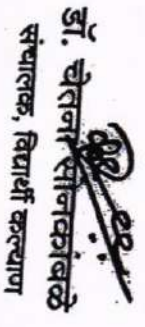 डॉ. चेतना सोनकांबळे
संचालक, विद्यार्थी कल्याण